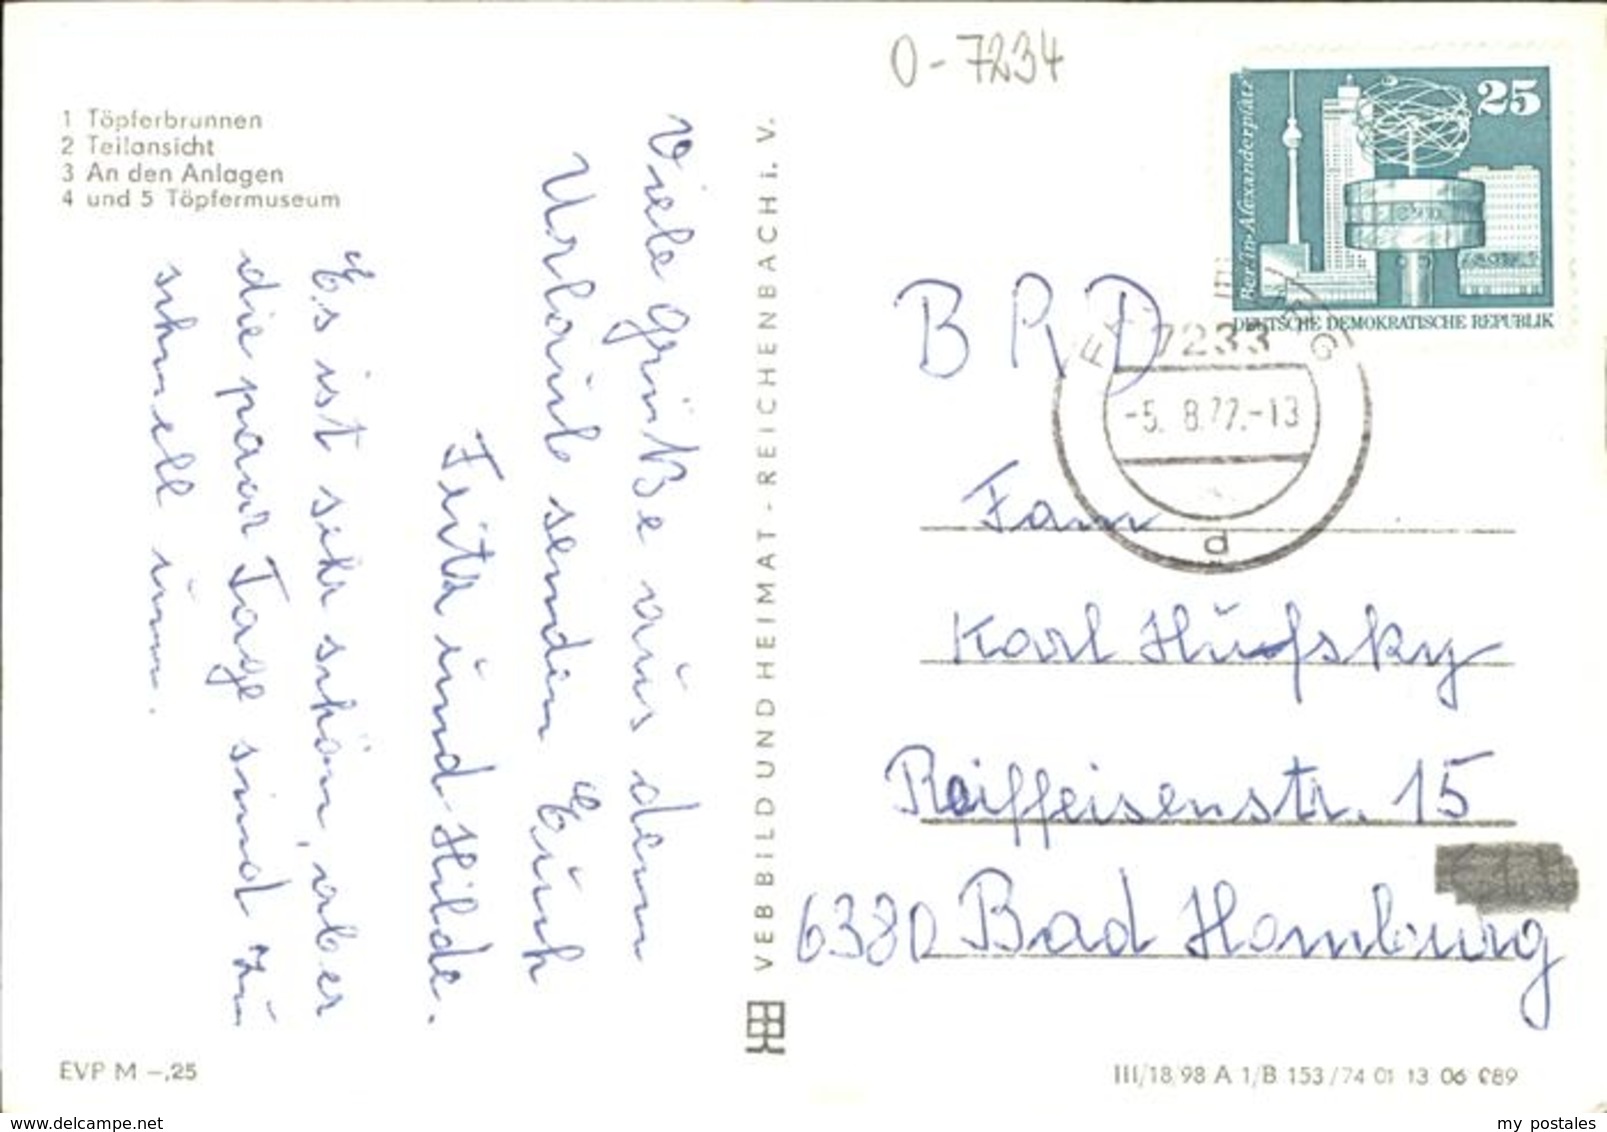 1 Töpferbrunnen
2 Teilansicht
3 An den Anlagen
4 und 5 Töpfermuseum
Viele Grüße aus dem
Urlaub senden Euch
Fritz und Hilde.
Es ist sehr schön, aber
die paar Tage sind zu
schnell um.
EVP M –,25
VEB BILD UND HEIMAT - REICHENBACH i. V.
O-7234
25
Berlin-Alexanderplatz
DEUTSCHE DEMOKRATISCHE REPUBLIK
7233
-5. 8.77.-13
d
BRD
Fam
Karl Hufsky
Raiffeisenstr. 15
6380 Bad Homburg
III/18 98 A 1/B 153/74 01 13 06 089
my postales